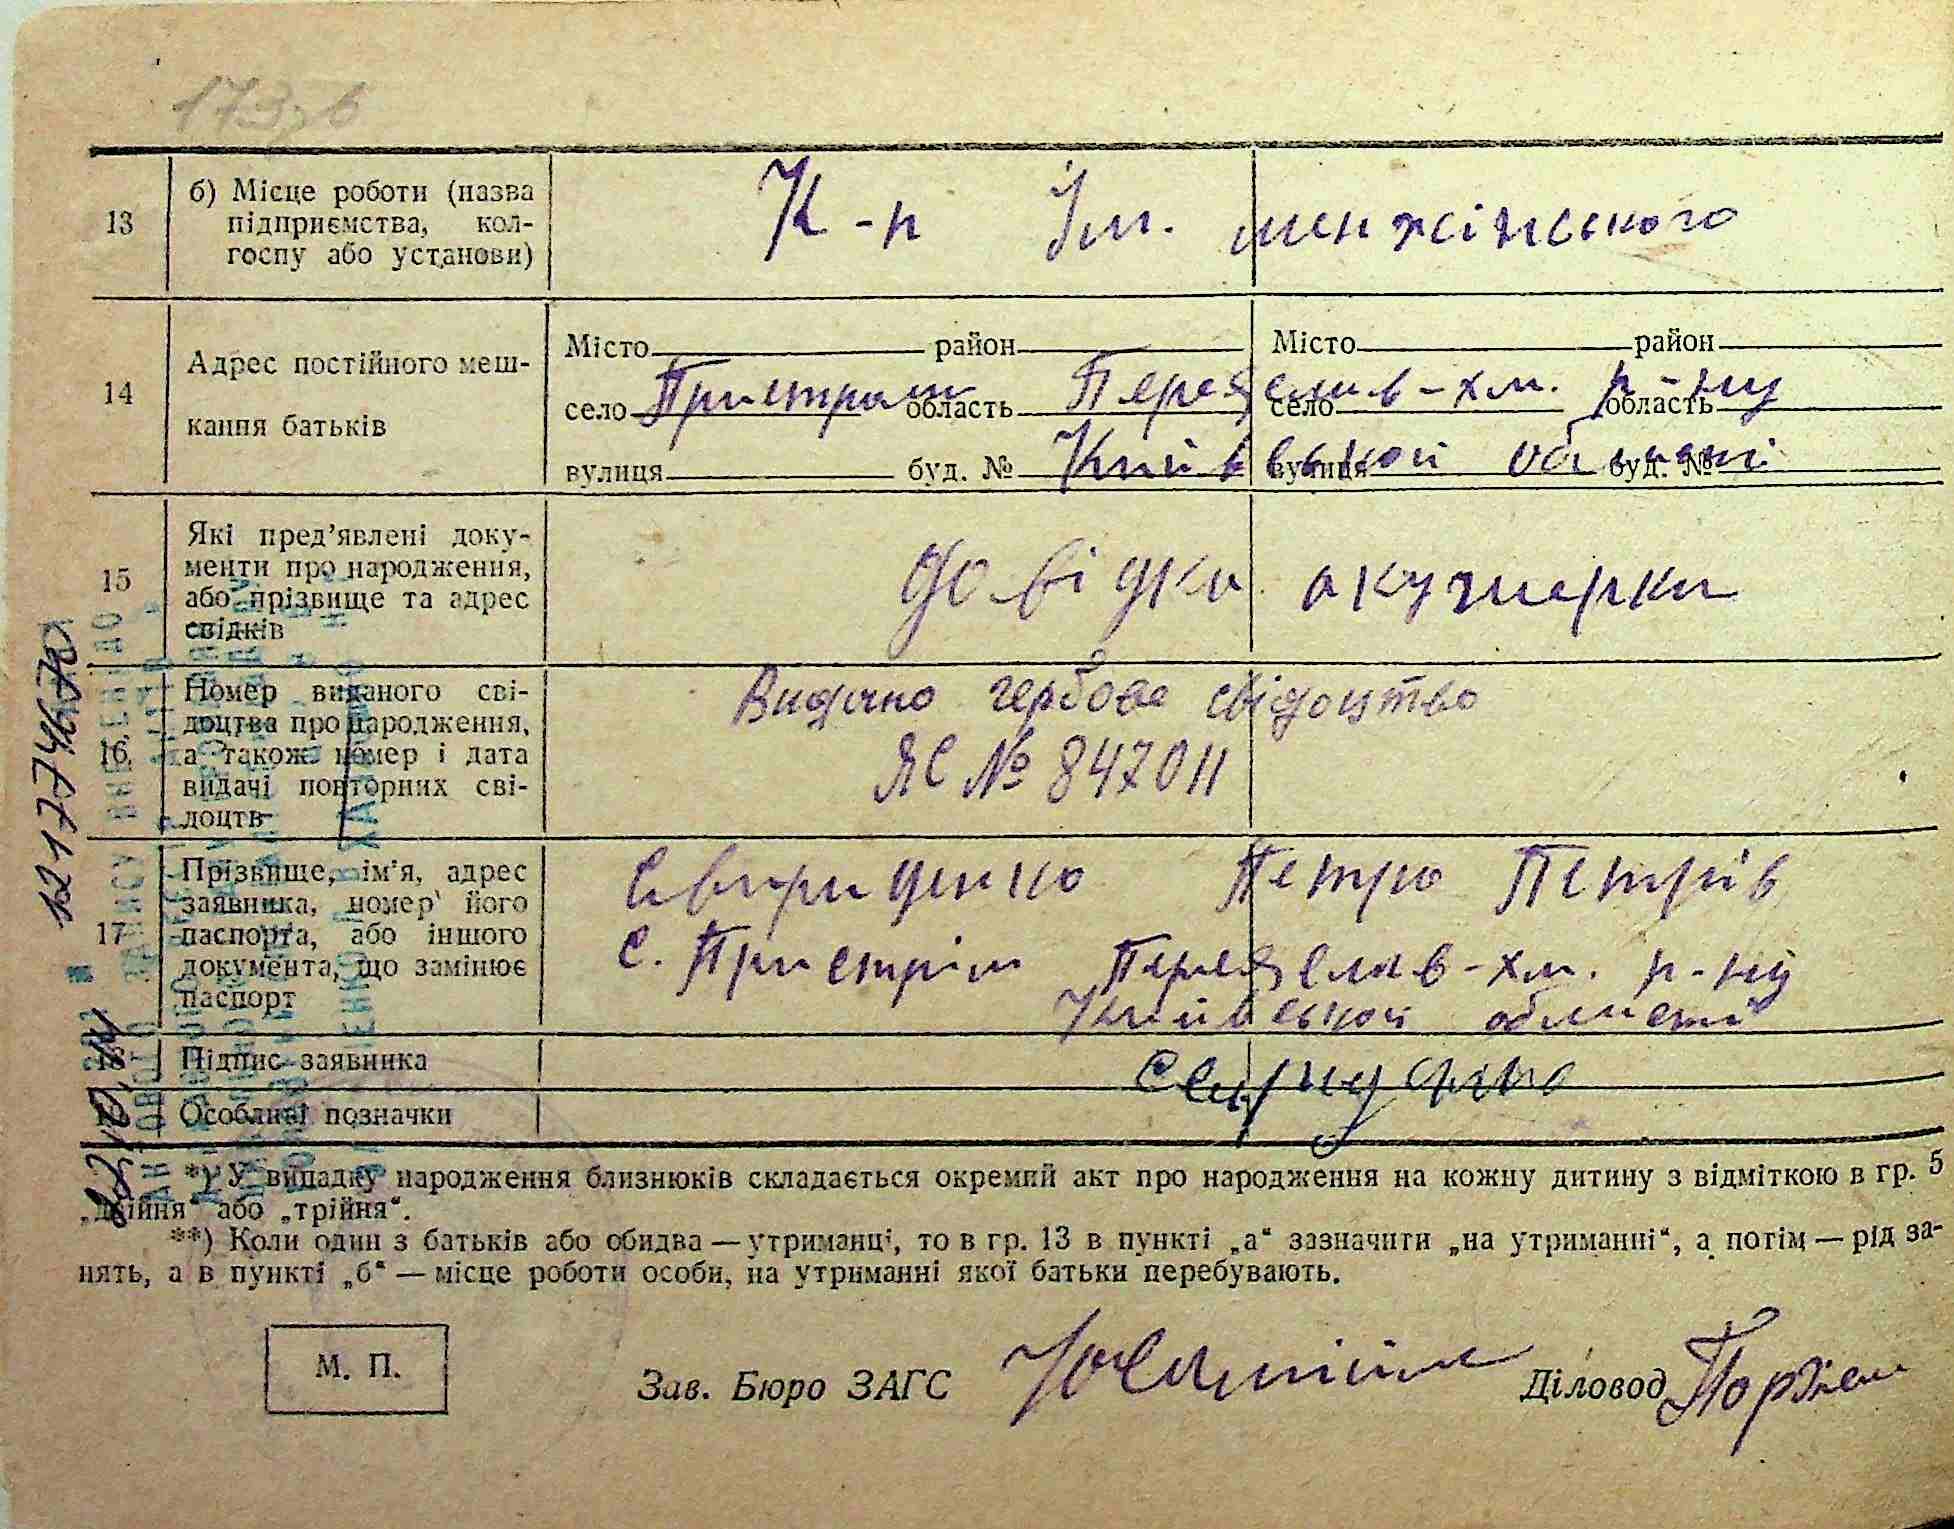 173зв
13 б) Місце роботи (назва підприємства, кол-
госпу або установи)
К-п їм. менжінського
14 Адрес постійного меш-
кання батьків
Місто район Місто район
село область село область
Пристроми Переяслав-хм. р-ну
вулиця буд. № вулиця буд. №
Київської області
15 Які пред’явлені доку-
менти про народження,
або прізвище та адрес
свідків
довідка акушерки
16 Номер виданого сві-
доцтва про народження,
а також номер і дата
видачі повторних сві-
доцтв
Видано гербове свідоцтво
ЯС № 847011
17 Прізвище, ім’я, адрес
заявника, номер його
паспорта, або іншого
документа, що замінює
паспорт
Свириденко Петро Петрів
с. Пристром Переяслав-хм. р-ну
Київської області
18 Підпис заявника
Особливі позначки
*) У випадку народження близнюків складається окремий акт про народження на кожну дитину з відміткою в гр. 5
„двійня“ або „трійня“.
**) Коли один з батьків або обидва — утриманці, то в гр. 13 в пункті „а“ зазначити „на утриманні“, а потім — рід за-
нять, а в пункті „б“ — місце роботи особи, на утриманні якої батьки перебувають.
М. П.
Зав. Бюро ЗАГС Діловод